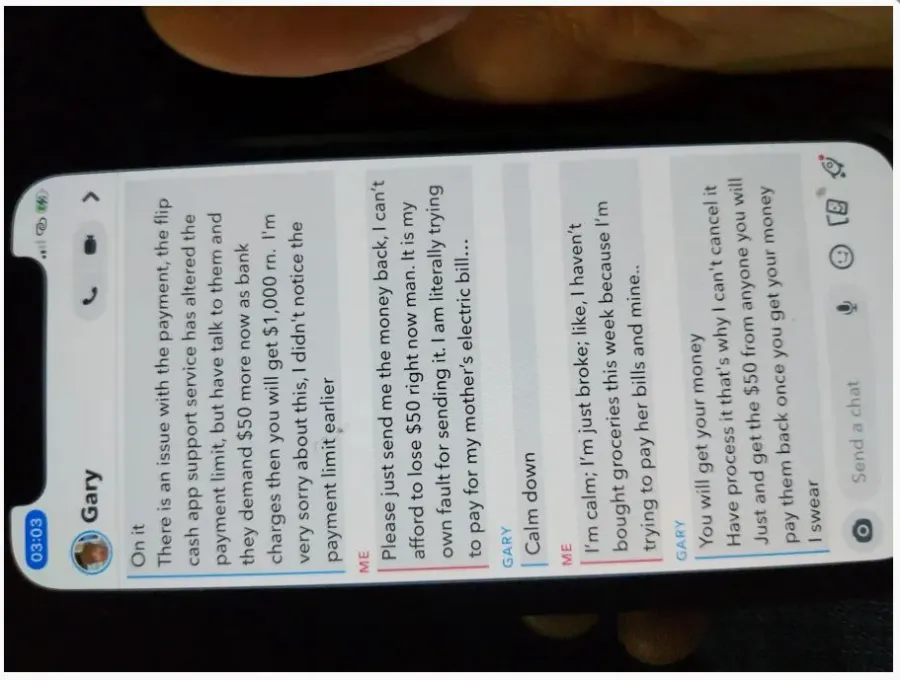 03:03
Gary
On it
There is an issue with the payment, the flip
cash app support service has altered the
payment limit, but have talk to them and
they demand $50 more now as bank
charges then you will get $1,000 rn. I'm
very sorry about this, I didn't notice the
payment limit earlier
ME
Please just send me the money back, I can't
afford to lose $50 right now man. It is my
own fault for sending it. I am literally trying
to pay for my mother's electric bill...
GARY
Calm down
ME
I'm calm; I'm just broke; like, I haven't
bought groceries this week because I'm
trying to pay her bills and mine..
GARY
You will get your money
Have process it that's why I can't cancel it
Just and get the $50 from anyone you will
pay them back once you get your money
I swear
Send a chat